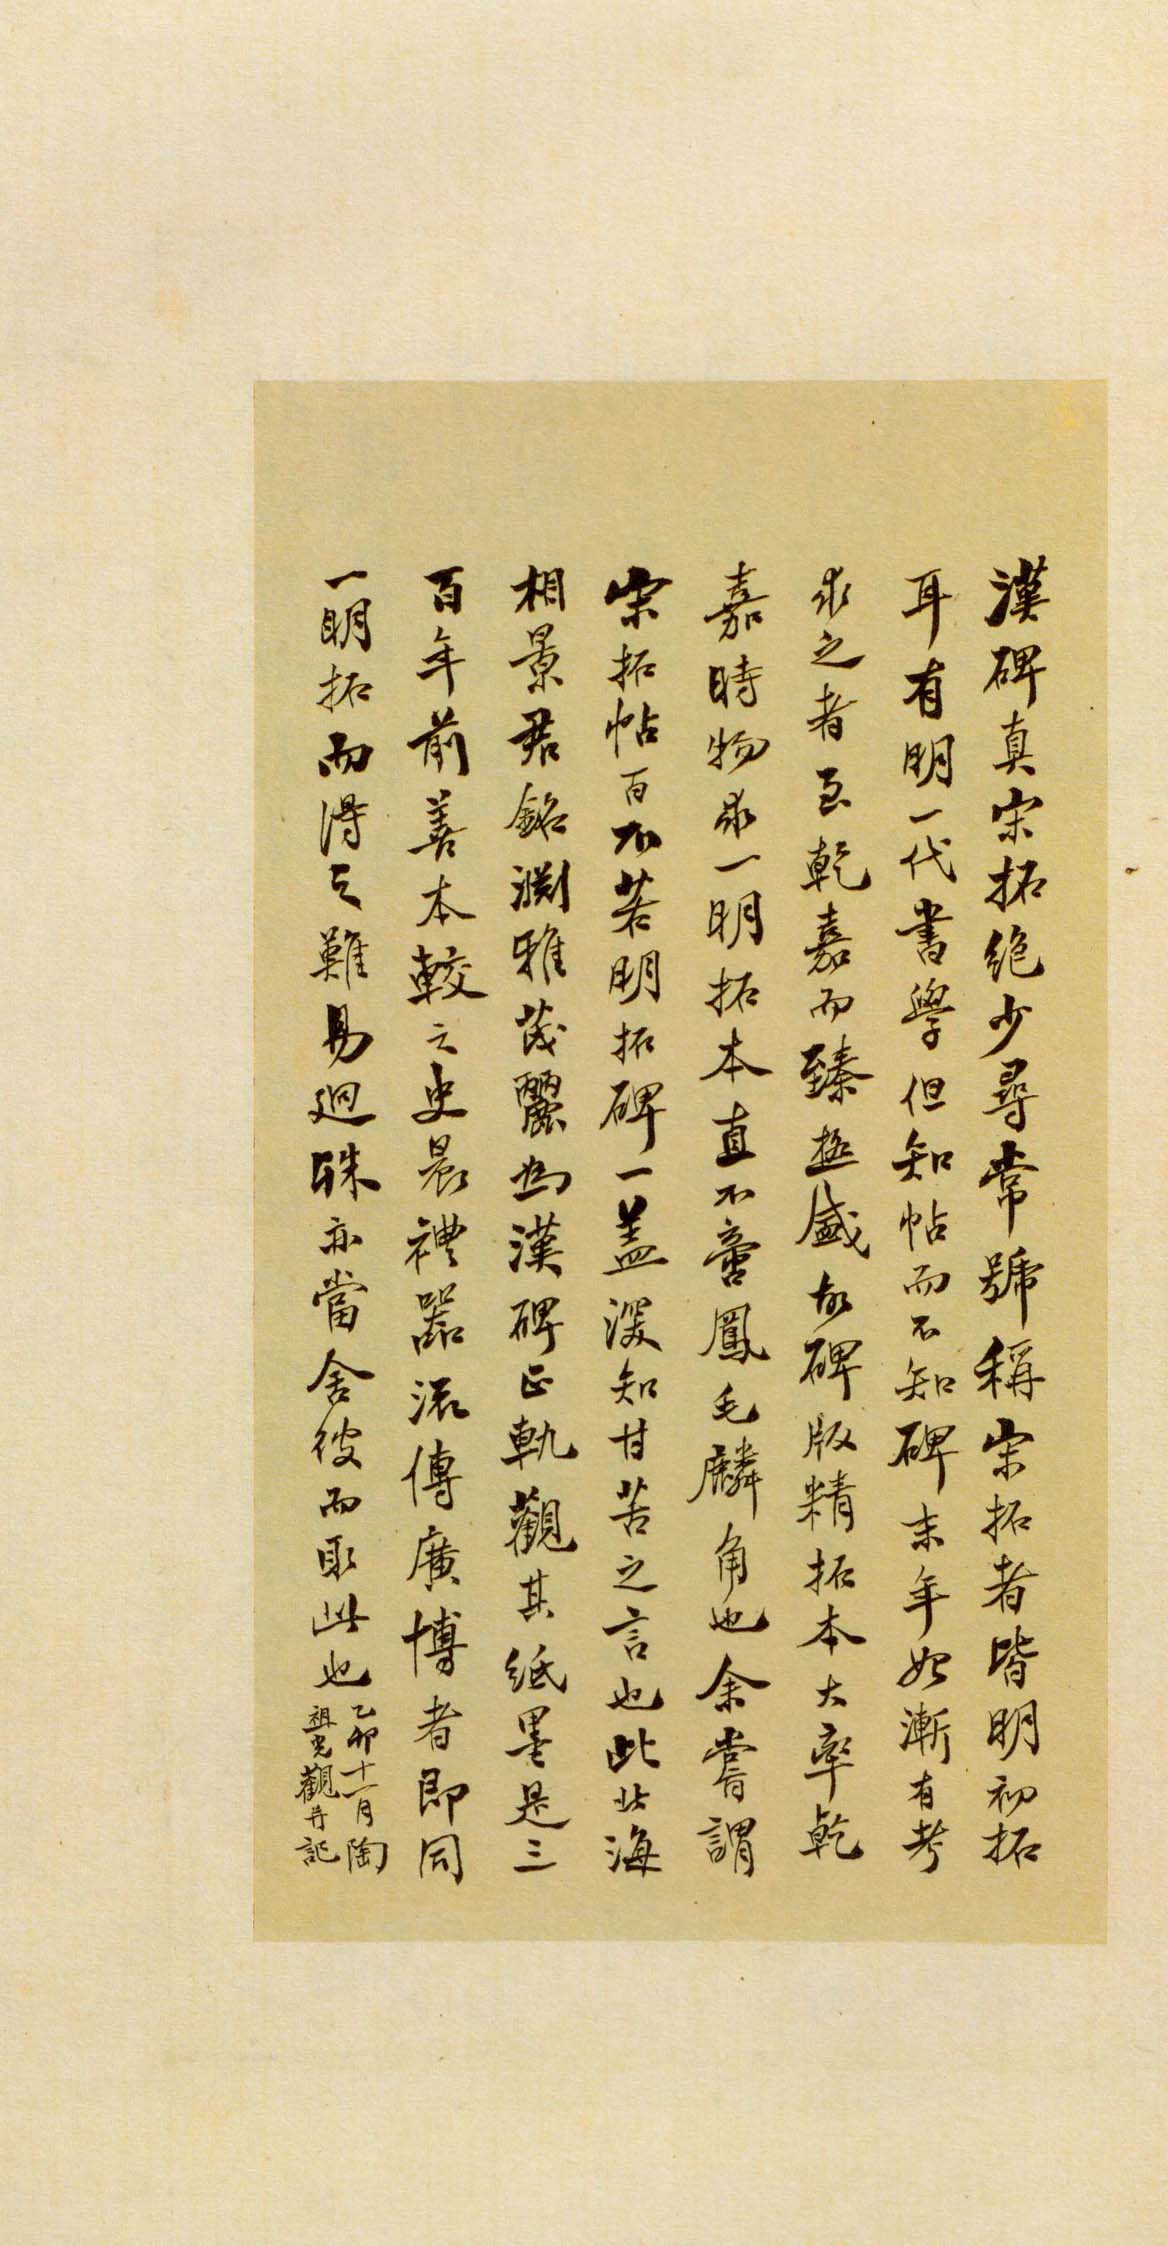 漢碑真宋拓絶少尋常號稱宋拓者皆明初拓
耳有明一代書學但知帖而不知碑末年始漸有考
求之者至乾嘉而臻極盛故碑版精拓本大率乾
嘉時物求一明拓本直不啻鳳毛麟角也余嘗謂
宋拓帖百不若明拓碑一蓋深知甘苦之言也此北海
相景君銘淵雅茂麗為漢碑正軌觀其紙墨是三
百年前善本較之史晨禮器流傳廣博者即同
一明拓而得之難易迥殊亦當舍彼而取此也
乙卯十一月陶
祖光觀并記